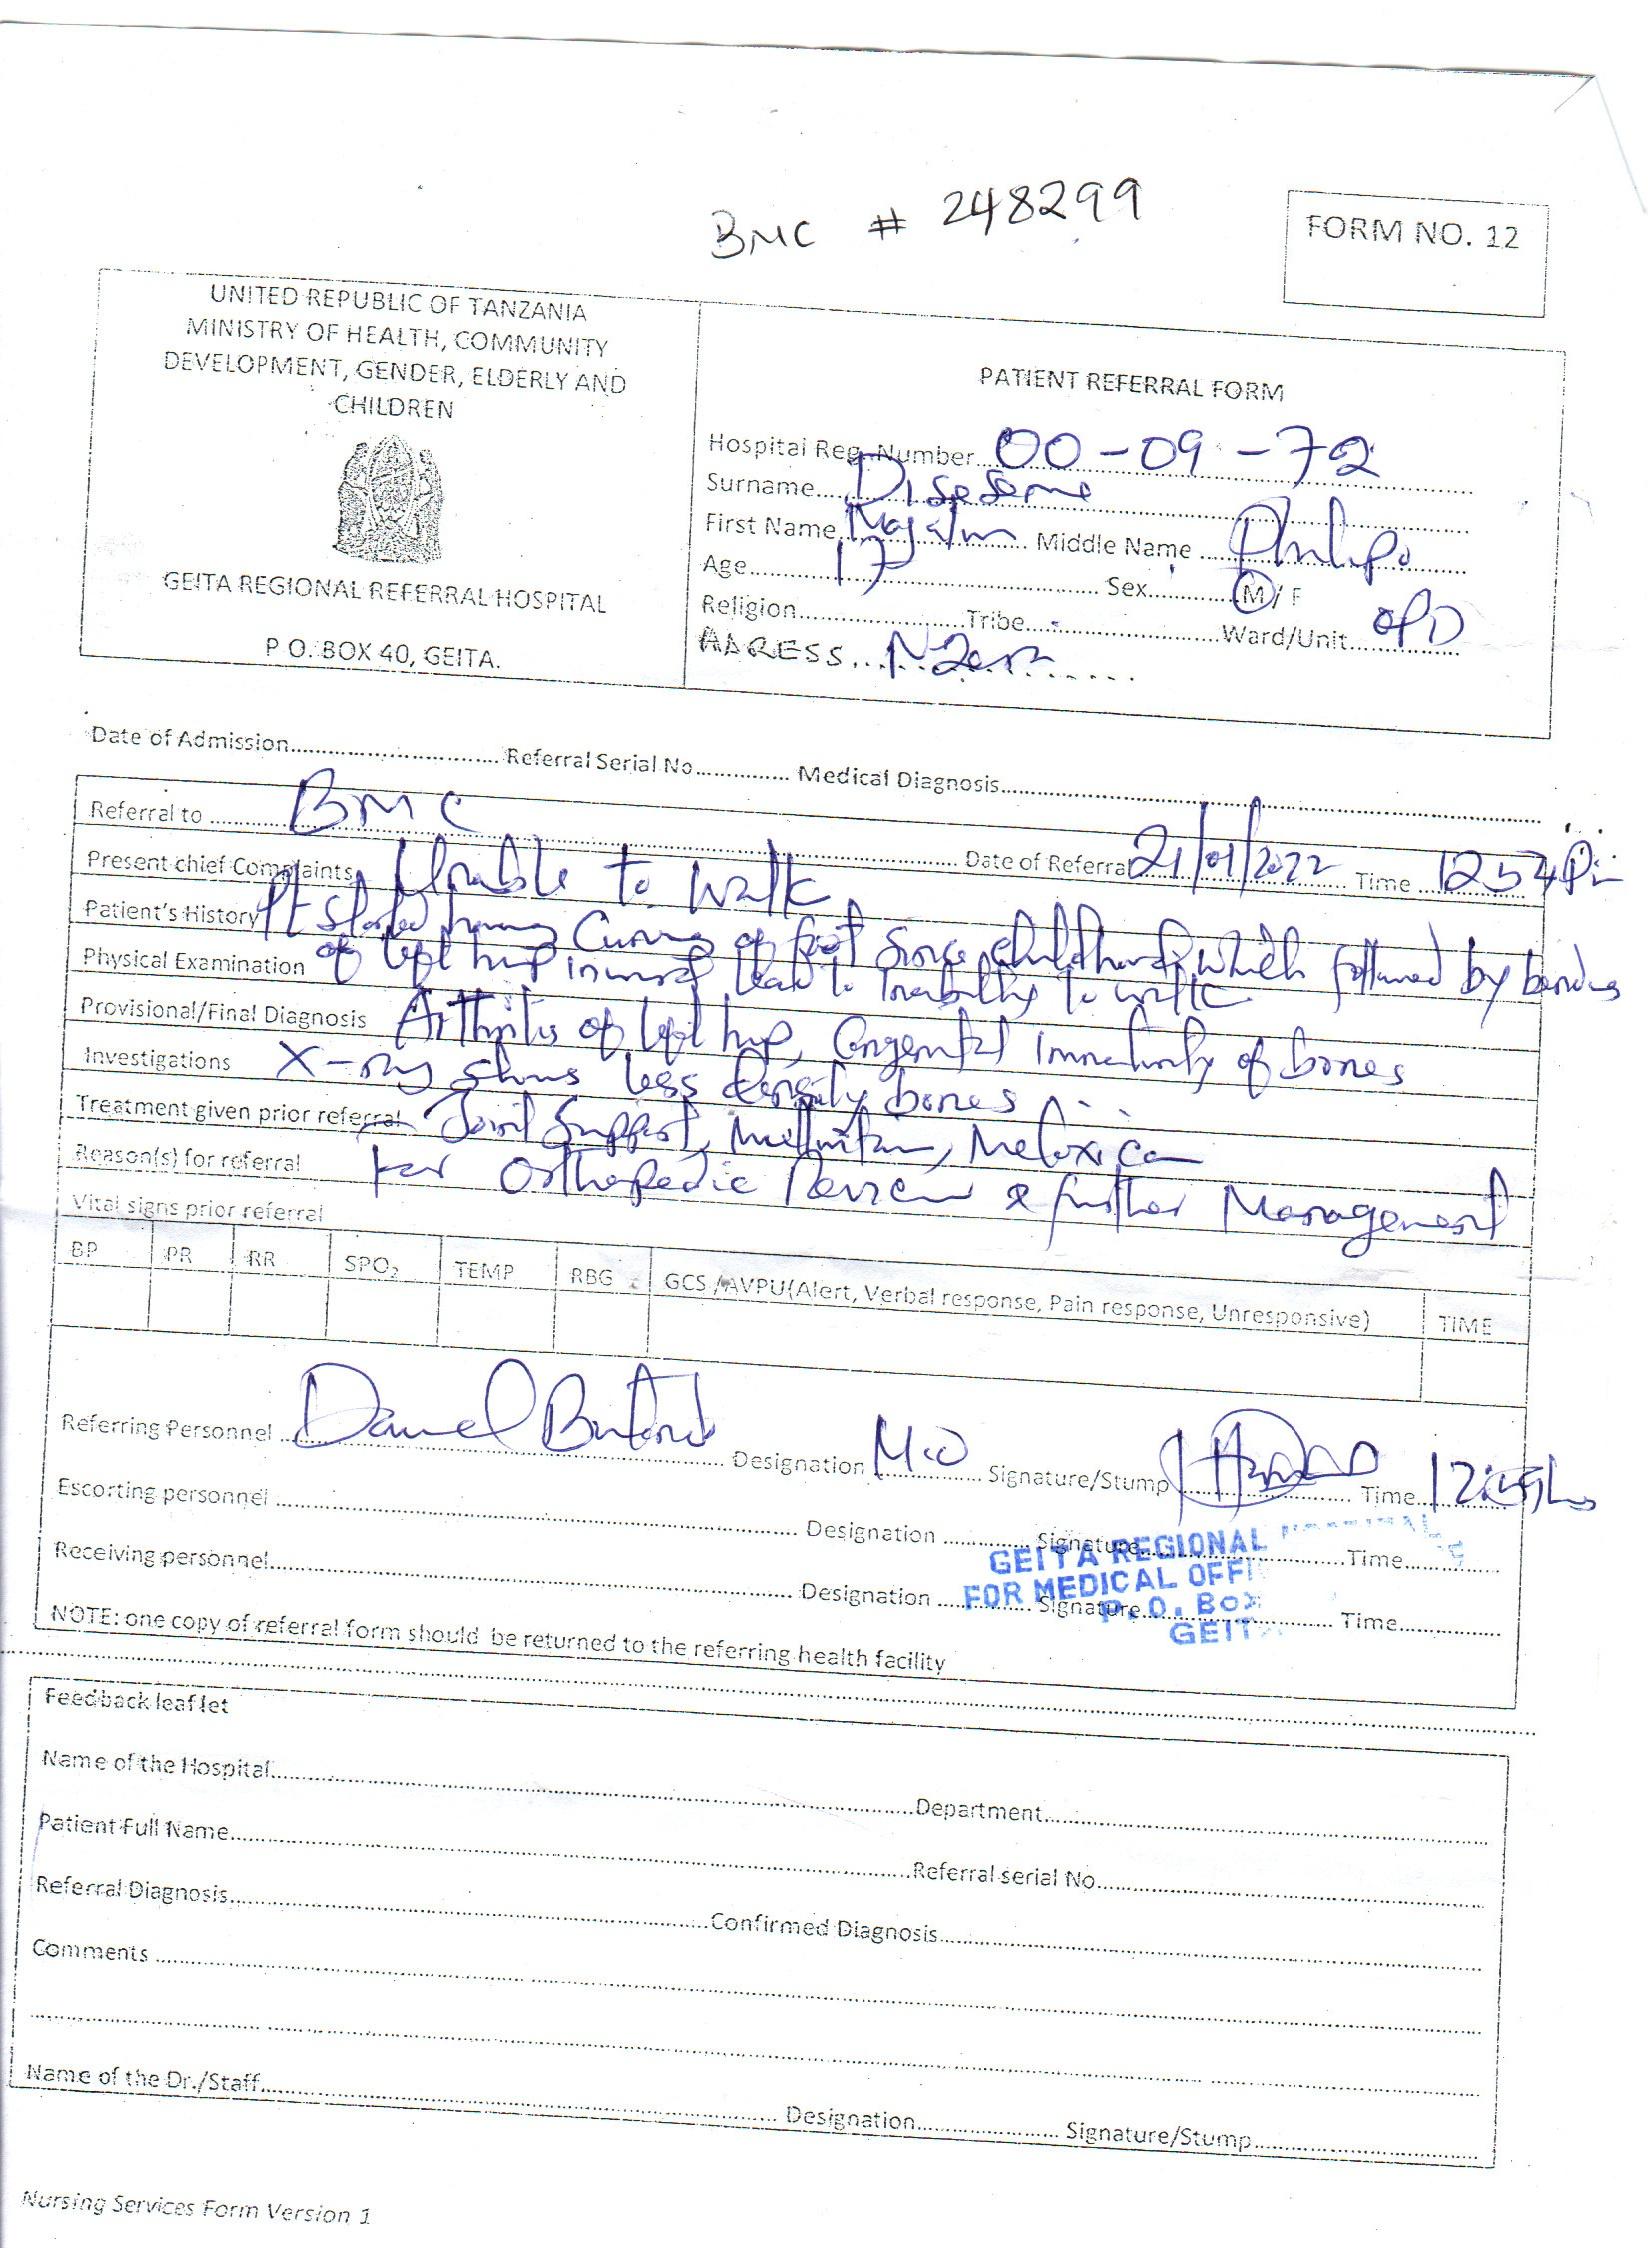 BMC # 248299
FORM NO. 12
UNITED REPUBLIC OF TANZANIA
MINISTRY OF HEALTH, COMMUNITY
DEVELOPMENT, GENDER, ELDERLY AND
CHILDREN
GEITA REGIONAL REFERRAL HOSPITAL
P O. BOX 40, GEITA.
PATIENT REFERRAL FORM
Hospital Reg. Number 00-09-72
Surname
First Name Middle Name Philipo
Age 17 Sex M / F
Religion Tribe Ward/Unit OPD
ADRESS
Date of Admission Referral Serial No Medical Diagnosis
Referral to BMC Date of Referral 21/01/2022 Time 1254
Present chief Complaints Unable to walk
Patient's History Pt started having Curving of foot since childhood, which followed by
Physical Examination of left hip inward lead to inability to walk
Provisional/Final Diagnosis Arthritis of left hip, Congenital immaturity of bones
Investigations X-ray shows less density bones
Treatment given prior referral Joint Support, Meloxicam
Reason(s) for referral For Orthopedic Review & further Management
Vital signs prior referral
BP PR RR SPO2 TEMP RBG GCS /AVPU(Alert, Verbal response, Pain response, Unresponsive) TIME
Referring Personnel Daniel Designation M.O Signature/Stump Time
Escorting personnel Designation Signature Time
Receiving personnel Designation Signature Time
GEITA REGIONAL
FOR MEDICAL OFFI
P.O. BOX
GEIT
NOTE: one copy of referral form should be returned to the referring health facility
Feedback leaflet
Name of the Hospital Department
Patient Full Name Referral serial No
Referral Diagnosis Confirmed Diagnosis
Comments
Name of the Dr./Staff Designation Signature/Stump
Nursing Services Form Version 1